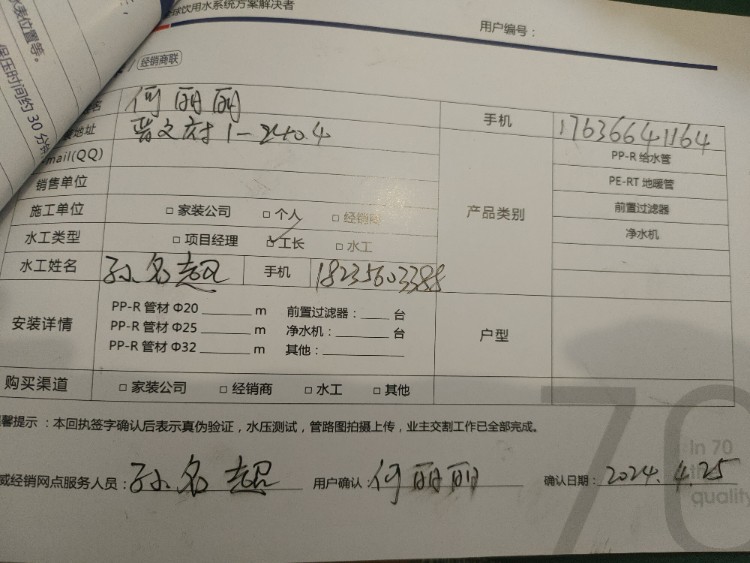 饮用水系统方案解决者
用户编号：
表位置等。
保压时间约 30 分钟
经销商联
名 何丽丽 手机 17636641164
地址 晋文府1-2404 产品类别 PP-R 给水管
mail(QQ) PE-RT 地暖管
销售单位 前置过滤器
施工单位 □ 家装公司 □ 个人 □ 经销商 净水机
水工类型 □ 项目经理 ☑ 工长 □ 水工
水工姓名 孙名超 手机 18235603388
安装详情 PP-R 管材 Φ20 ______ m 前置过滤器：____ 台 户型
PP-R 管材 Φ25 ______ m 净水机：______ 台
PP-R 管材 Φ32 ______ m 其他：______
购买渠道 □ 家装公司 □ 经销商 □ 水工 □ 其他
馨提示：本回执签字确认后表示真伪验证，水压测试，管路图拍摄上传，业主交割工作已全部完成。
威经销网点服务人员：孙名超 用户确认：何丽丽 确认日期：2024.4.25
70
In 70
quality